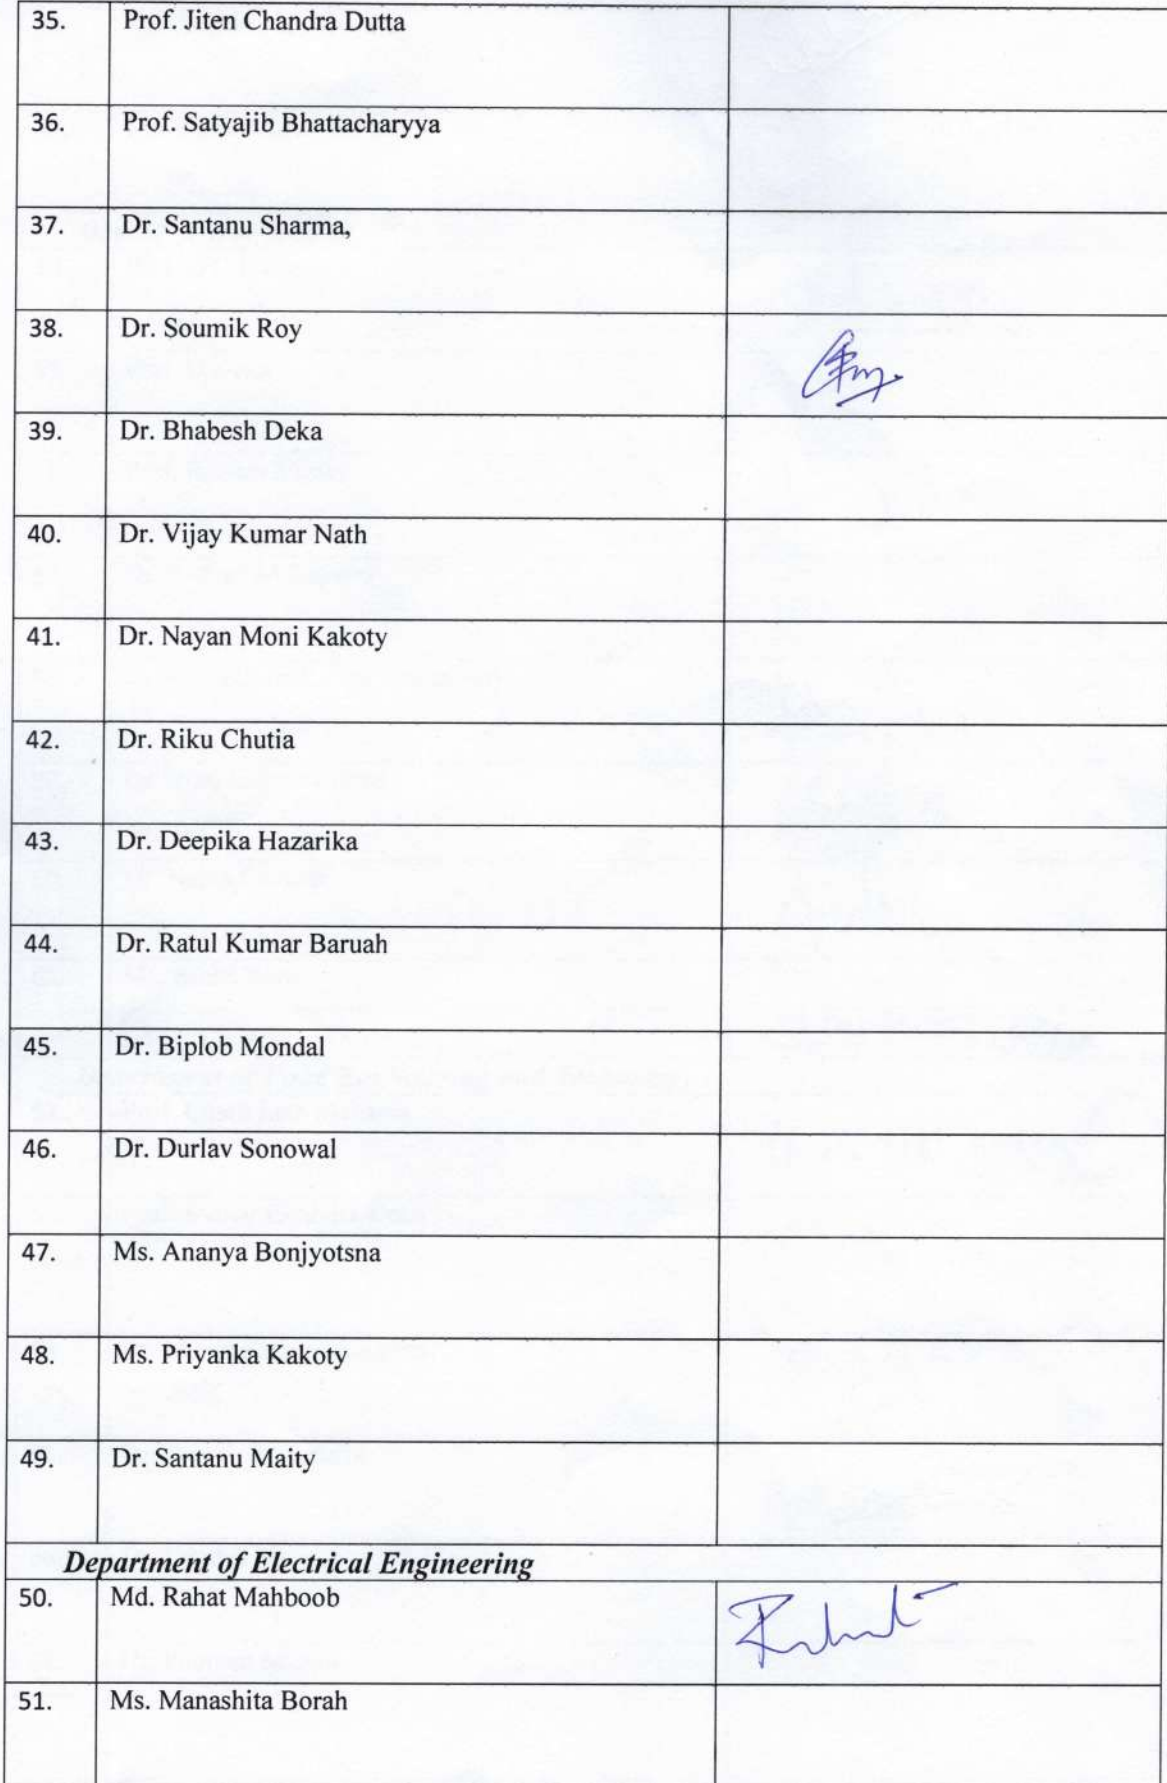 35. Prof. Jiten Chandra Dutta
36. Prof. Satyajib Bhattacharyya
37. Dr. Santanu Sharma,
38. Dr. Soumik Roy
39. Dr. Bhabesh Deka
40. Dr. Vijay Kumar Nath
41. Dr. Nayan Moni Kakoty
42. Dr. Riku Chutia
43. Dr. Deepika Hazarika
44. Dr. Ratul Kumar Baruah
45. Dr. Biplob Mondal
46. Dr. Durlav Sonowal
47. Ms. Ananya Bonjyotsna
48. Ms. Priyanka Kakoty
49. Dr. Santanu Maity
Department of Electrical Engineering
50. Md. Rahat Mahboob
51. Ms. Manashita Borah